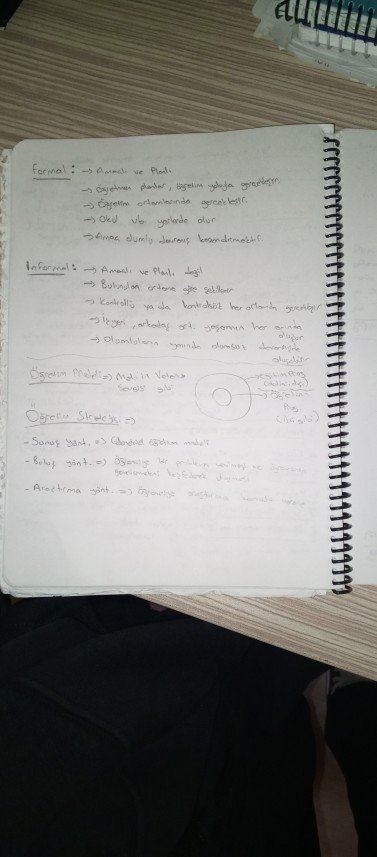 Formal: → Amaçlı ve Planlı
→ Öğretmen planlar, öğretim yoluyla gerçekleşir.
→ Öğretim ortamlarında gerçekleşir.
→ Okul vb. yerlerde olur
→ Amaç olumlu davranış kazandırmaktır.
Informal: → Amaçlı ve Planlı değil
→ Bulunulan ortama göre şekillenir
→ Kontrollü ya da kontrolsüz her ortamda gerçekleşir
→ İş yeri, arkadaş ort. yaşamın her anında
oluşur
→ Olumluların yanında olumsuz davranışlar
oluşabilir
Öğretim Modeli →
gibi
Eğitim Prog
Öğretim
Prog
Öğretim Stratejisi →
- Sunuş yönt. ⇒ öğretim modeli
- Buluş yönt. ⇒ Öğrenciye bir problem verilmesi ve öğrencinin
keşfederek ulaşması
- Araştırma yönt. ⇒ Öğrenciye araştırma